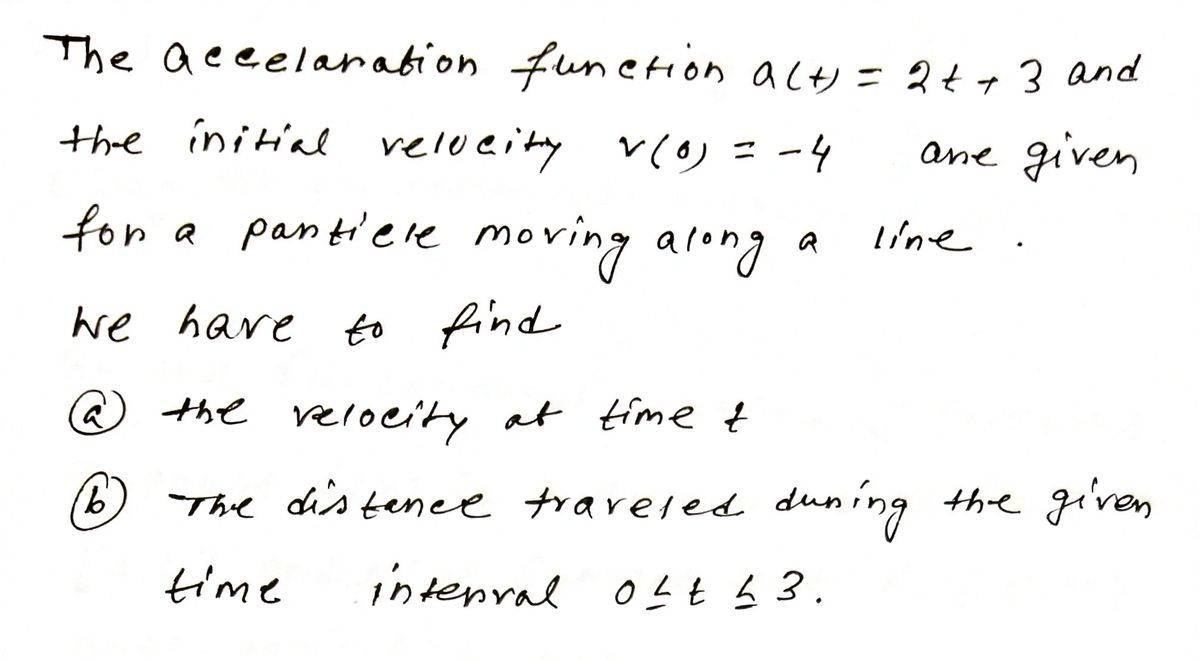 The accelaration function a(t) = 2t + 3 and
the initial velocity v(0) = -4 are given
for a particle moving along a line .
We have to find
(a) the velocity at time t
(b) The distance traveled during the given
time interval 0 ≤ t ≤ 3.